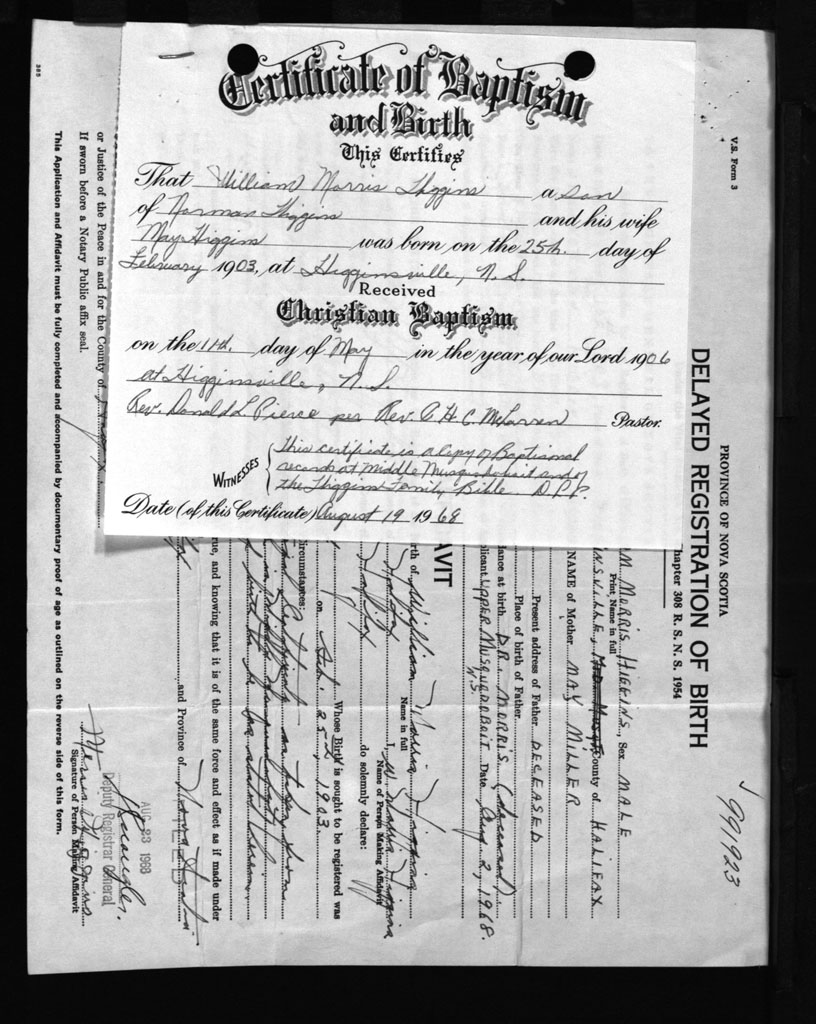 Certificate of Baptism
and Birth
This Certifies
That William Morris Higgins a son
of Norman Higgins and his wife
May Higgins was born on the 25th. day of
February 1903, at Higginsville, N.S.
Received
Christian Baptism
on the 11th. day of May in the year of our Lord 1906
at Higginsville, N.S.
Rev. Donald L. Pierce per Rev. A.H.C. McLarren Pastor.
WITNESSES
This certificate is a copy of Baptismal
record at Middle Musquodoboit and of
the Higgins Family Bible. D.L.P.
Date (of this Certificate) August 19 1968
V.S. Form 3
991923
PROVINCE OF NOVA SCOTIA
DELAYED REGISTRATION OF BIRTH
hapter 308 R. S. N. S. 1954
AM MORRIS HIGGINS, Sex MALE
Print Name in full
INSVILLE, County of HALIFAX
NAME of Mother MAY MILLER
Present address of Father DECEASED
Place of birth of Father
dance at birth DR. MORRIS (deceased)
plicant UPPER MUSQUODOBOIT N.S. Date Aug 2, 1968.
AVIT
irth of William Morris Higgins
Name in full
I, W Morris Higgins
Name of Person Making Affidavit
Halifax do solemnly declare:
Whose Birth is sought to be registered was
on Feb. 25th, 1903.
ircumstances:
rue, and knowing that it is of the same force and effect as if made under
and Province of Nova Scotia
or Justice of the Peace in and for the County of Halifax
If sworn before a Notary Public affix seal.
Morris Higgins
Signature of Person Making Affidavit
AUG 23 1968
Deputy Registrar General
This Application and Affidavit must be fully completed and accompanied by documentary proof of age as outlined on the reverse side of this form.